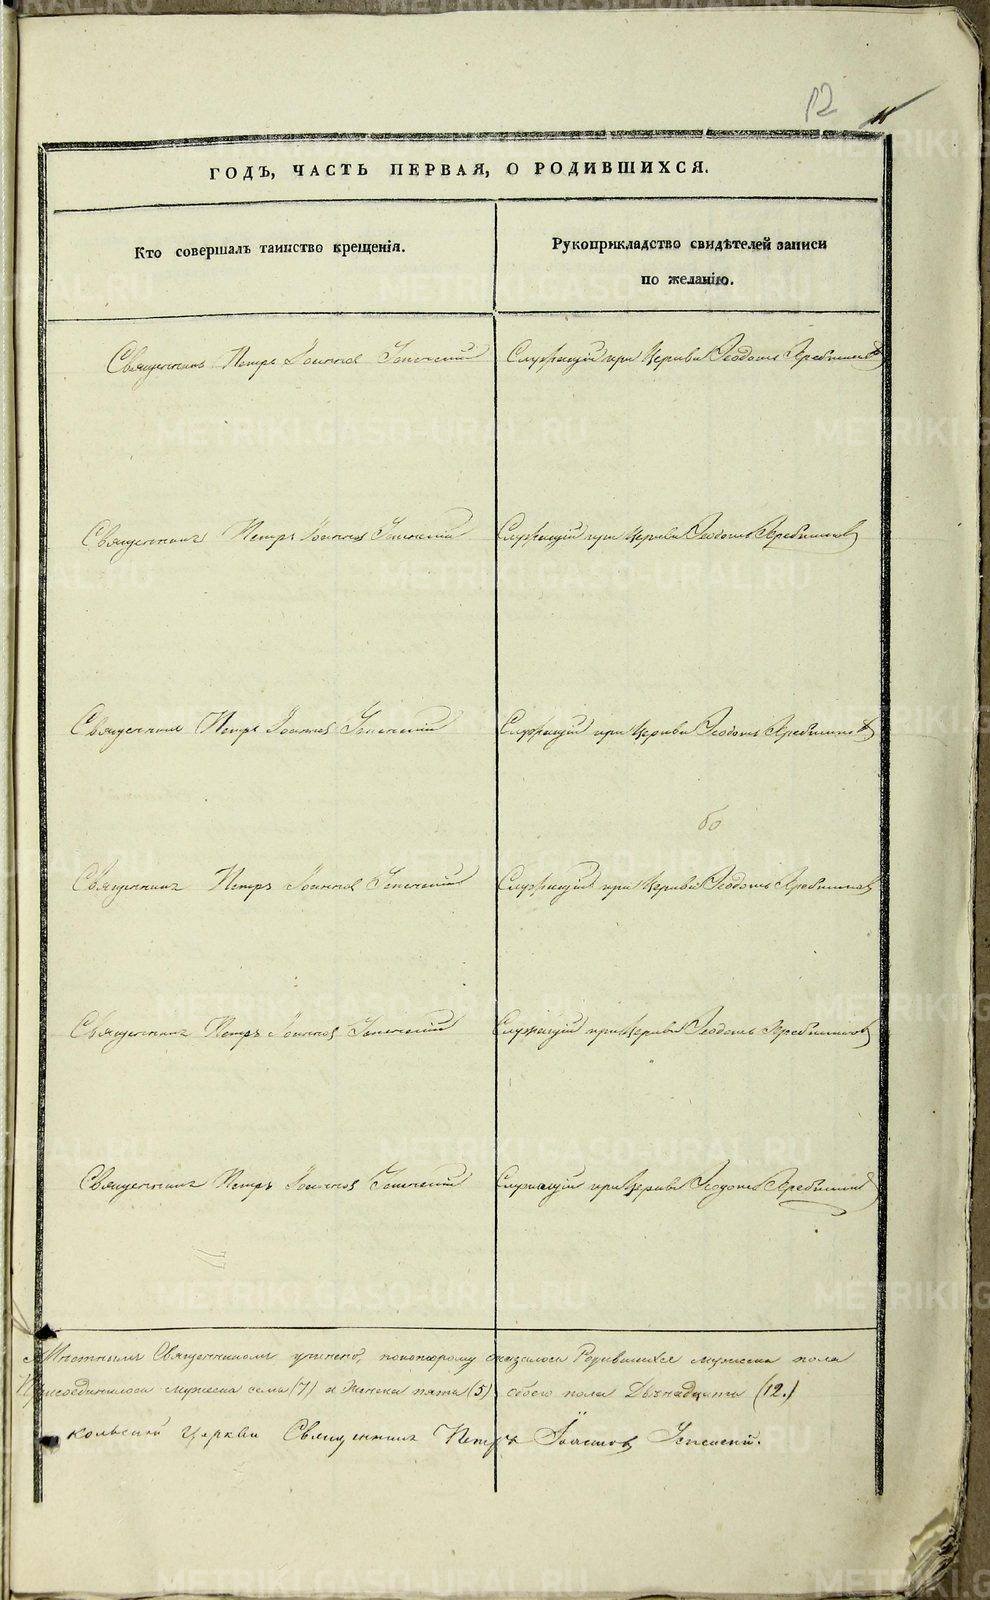 12
11
ГОДЪ, ЧАСТЬ ПЕРВАЯ, О РОДИВШИХСЯ.
Кто совершалъ таинство крещенія.
Рукоприкладство свидѣтелей записи
по желанію.
Священникъ Петръ Іоанновъ Успенскій Служащій при Церкви Ѳеодотъ
Священникъ Петръ Іоанновъ Успенскій Служащій при Церкви Ѳеодотъ
Священникъ Петръ Іоанновъ Успенскій Служащій при Церкви Ѳеодотъ
бо
Священникъ Петръ Іоанновъ Успенскій Служащій при Церкви Ѳеодотъ
Священникъ Петръ Іоанновъ Успенскій Служащій при Церкви Ѳеодотъ
Священникъ Петръ Іоанновъ Успенскій Служащій при Церкви Ѳеодотъ
Священникомъ учинено, покоторому оказалось Родившихся мужеска пола
Присоединилось мужеска семь (7) и Женска пять (5) обоего пола Двенадцать (12.)
кольской Церкви Священникъ Петръ Іоанновъ Успенскій.
METRIKI.GASO-URAL.RU